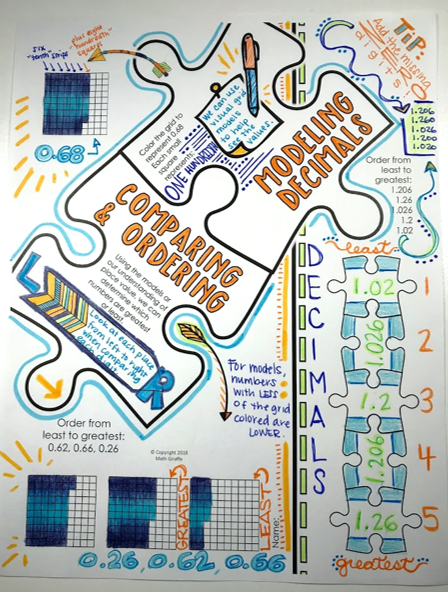 six
"tenth" strips
plus eight
"hundredth"
squares
0.68
Color the grid to
represent 0.68
Each small
square
represents
ONE HUNDREDTH
We can use
visual grid
models
to help
see the
values.
MODELING
DECIMALS
TIP:
Add the missing
digits
1.206
1.260
1.026
1.200
1.020
Order from
least to
greatest:
1.206
1.26
1.026
1.2
1.02
COMPARING
& ORDERING
Using the models or
our understanding of
place value, we can
determine which
numbers are greatest
or least.
L
Look at each place
from left to right
when comparing
each digit.
R
For models,
numbers
with LESS
of the grid
colored are
LOWER.
DECIMALS
least
1.02
1
1.026
2
1.2
3
1.206
4
1.26
5
greatest
Order from
least to greatest:
0.62, 0.66, 0.26
© Copyright 2018
Math Giraffe
GREATEST
LEAST
Name:
0.26, 0.62, 0.66